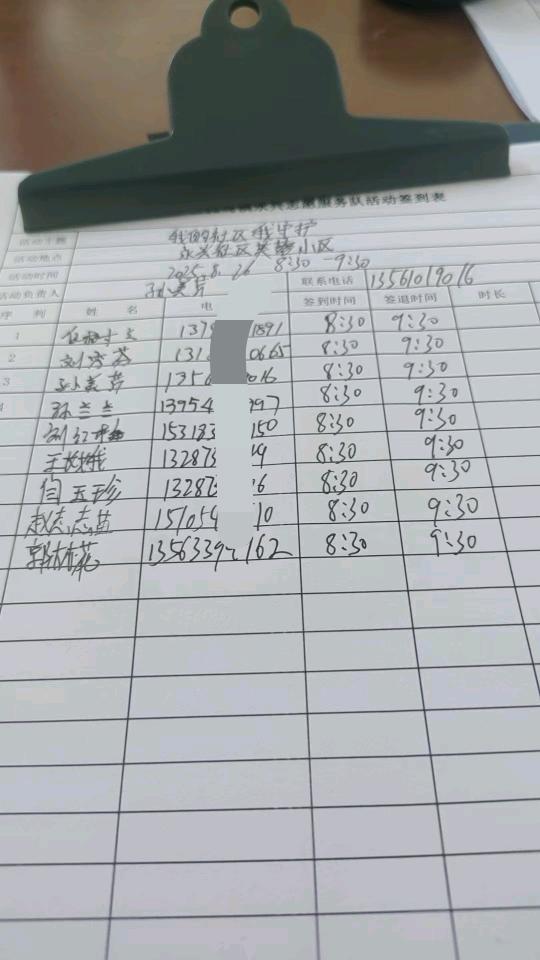 志愿服务队活动签到表
活动主题 我的社区我守护
活动地点 永兴社区英 小区
活动时间 2025.8.26 8:30-9:30
活动负责人 孙美芹 联系电话 13561019016
序 姓名 电 签到时间 签退时间 时长
1 137 1891 8:30 9:30
2 刘秀芬 131 0665 8:30 9:30
3 孙美芹 1356 9016 8:30 9:30
4 孙兰兰 13954 997 8:30 9:30
刘红 153183 150 8:30 9:30
王 娥 132878 8:30 9:30
闫玉珍 13287 6 8:30 9:30
赵志苗 151054 10 8:30 9:30
郭 花 1356339 162 8:30 9:30